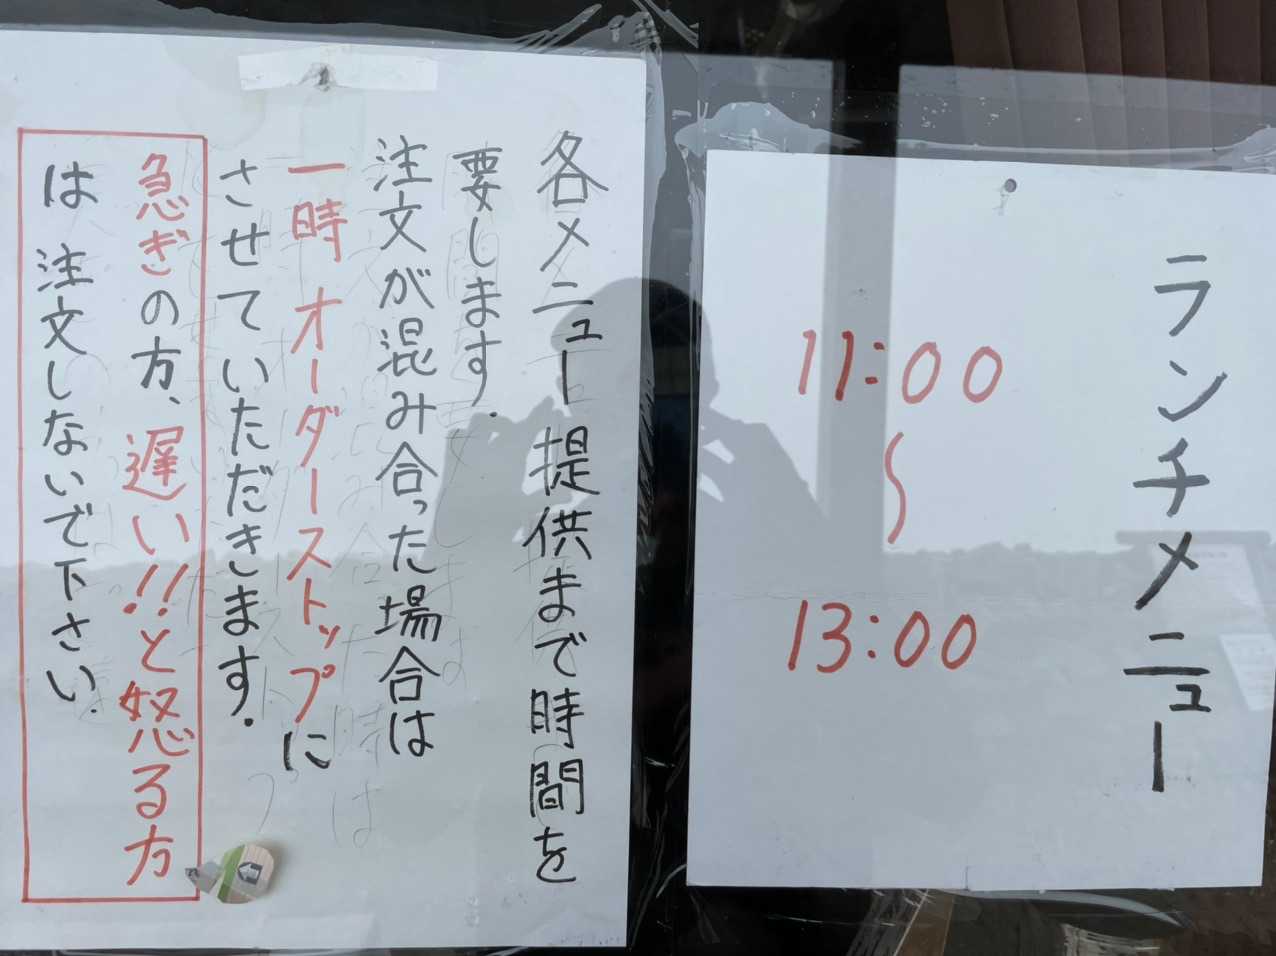 ランチメニュー
11:00
〜
13:00
各メニュー提供まで時間を
要します.
注文が混み合った場合は
一時オーダーストップに
させていただきます.
急ぎの方、遅い!!と怒る方
は注文しないで下さい.